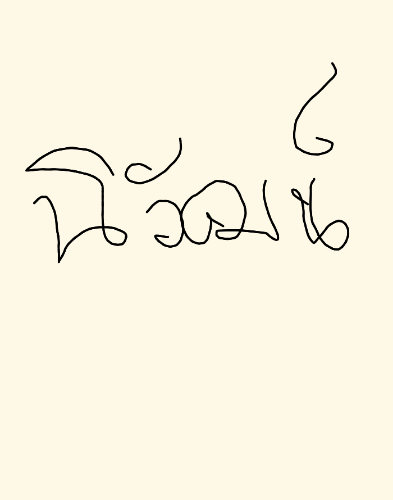 นิวัฒน์